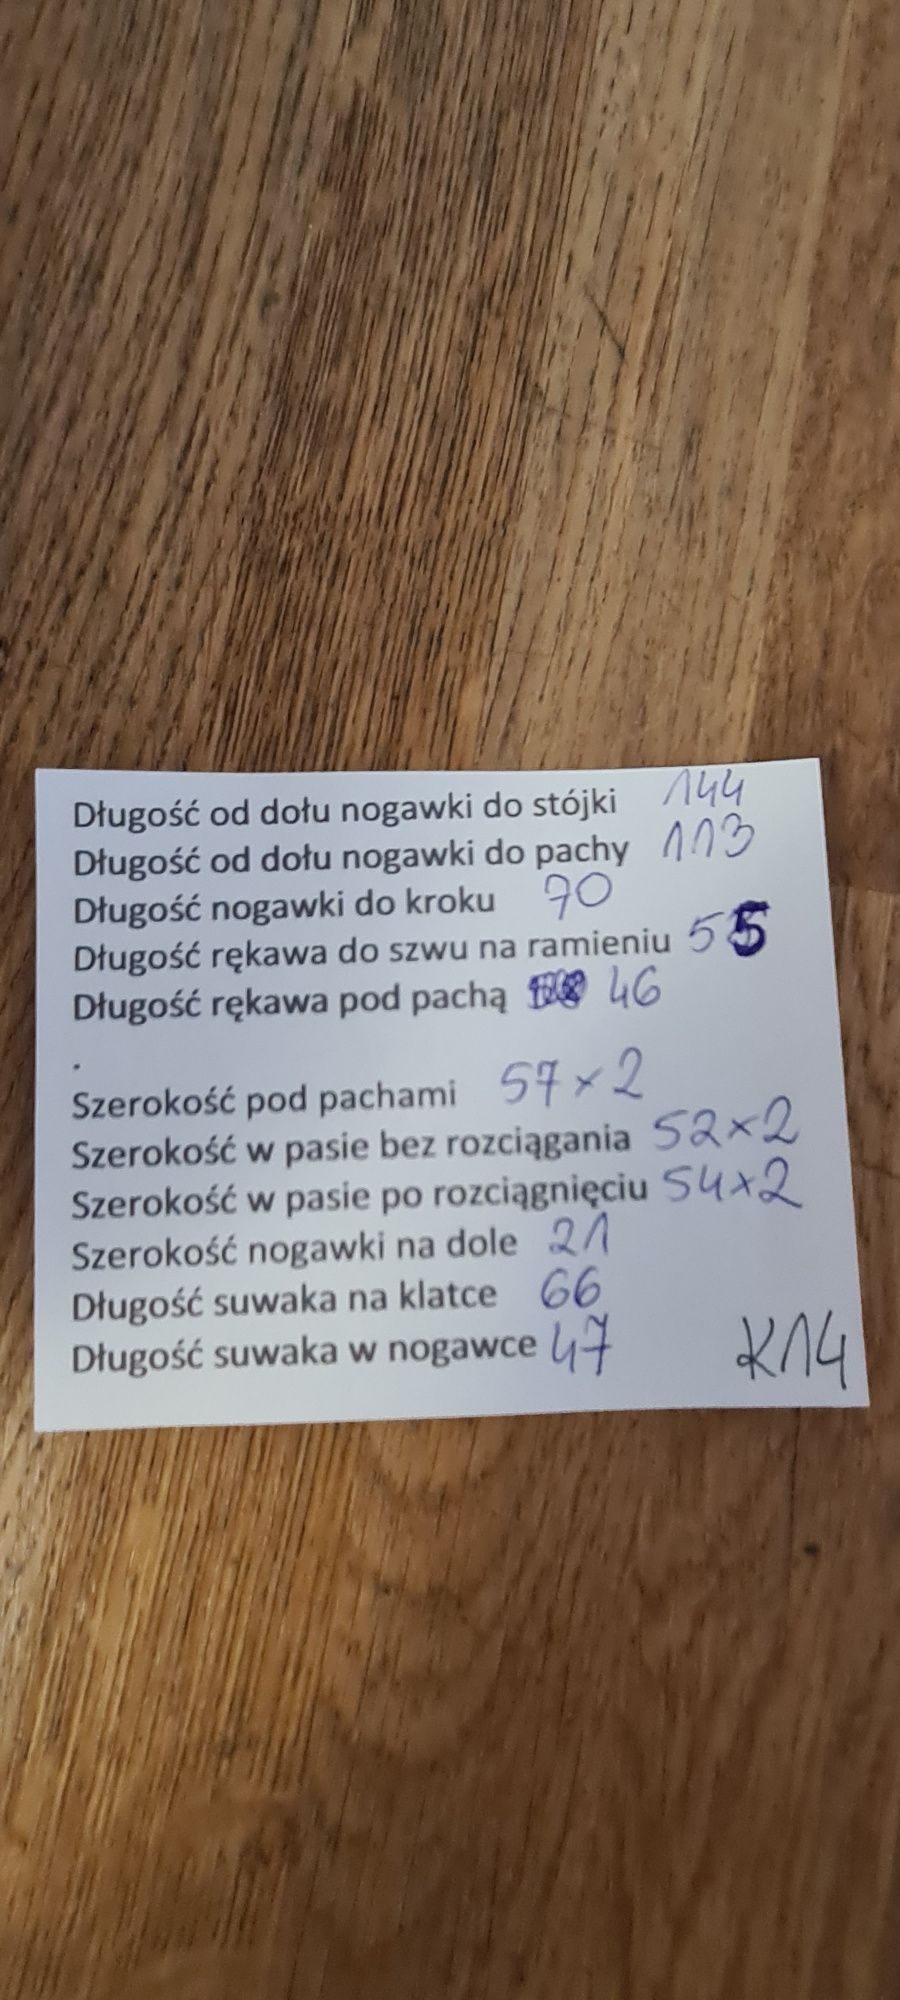 Długość od dołu nogawki do stójki 144
Długość od dołu nogawki do pachy 113
Długość nogawki do kroku 70
Długość rękawa do szwu na ramieniu 55
Długość rękawa pod pachą 46
.
Szerokość pod pachami 57 x 2
Szerokość w pasie bez rozciągania 52 x 2
Szerokość w pasie po rozciągnięciu 54 x 2
Szerokość nogawki na dole 21
Długość suwaka na klatce 66
Długość suwaka w nogawce 47
K14